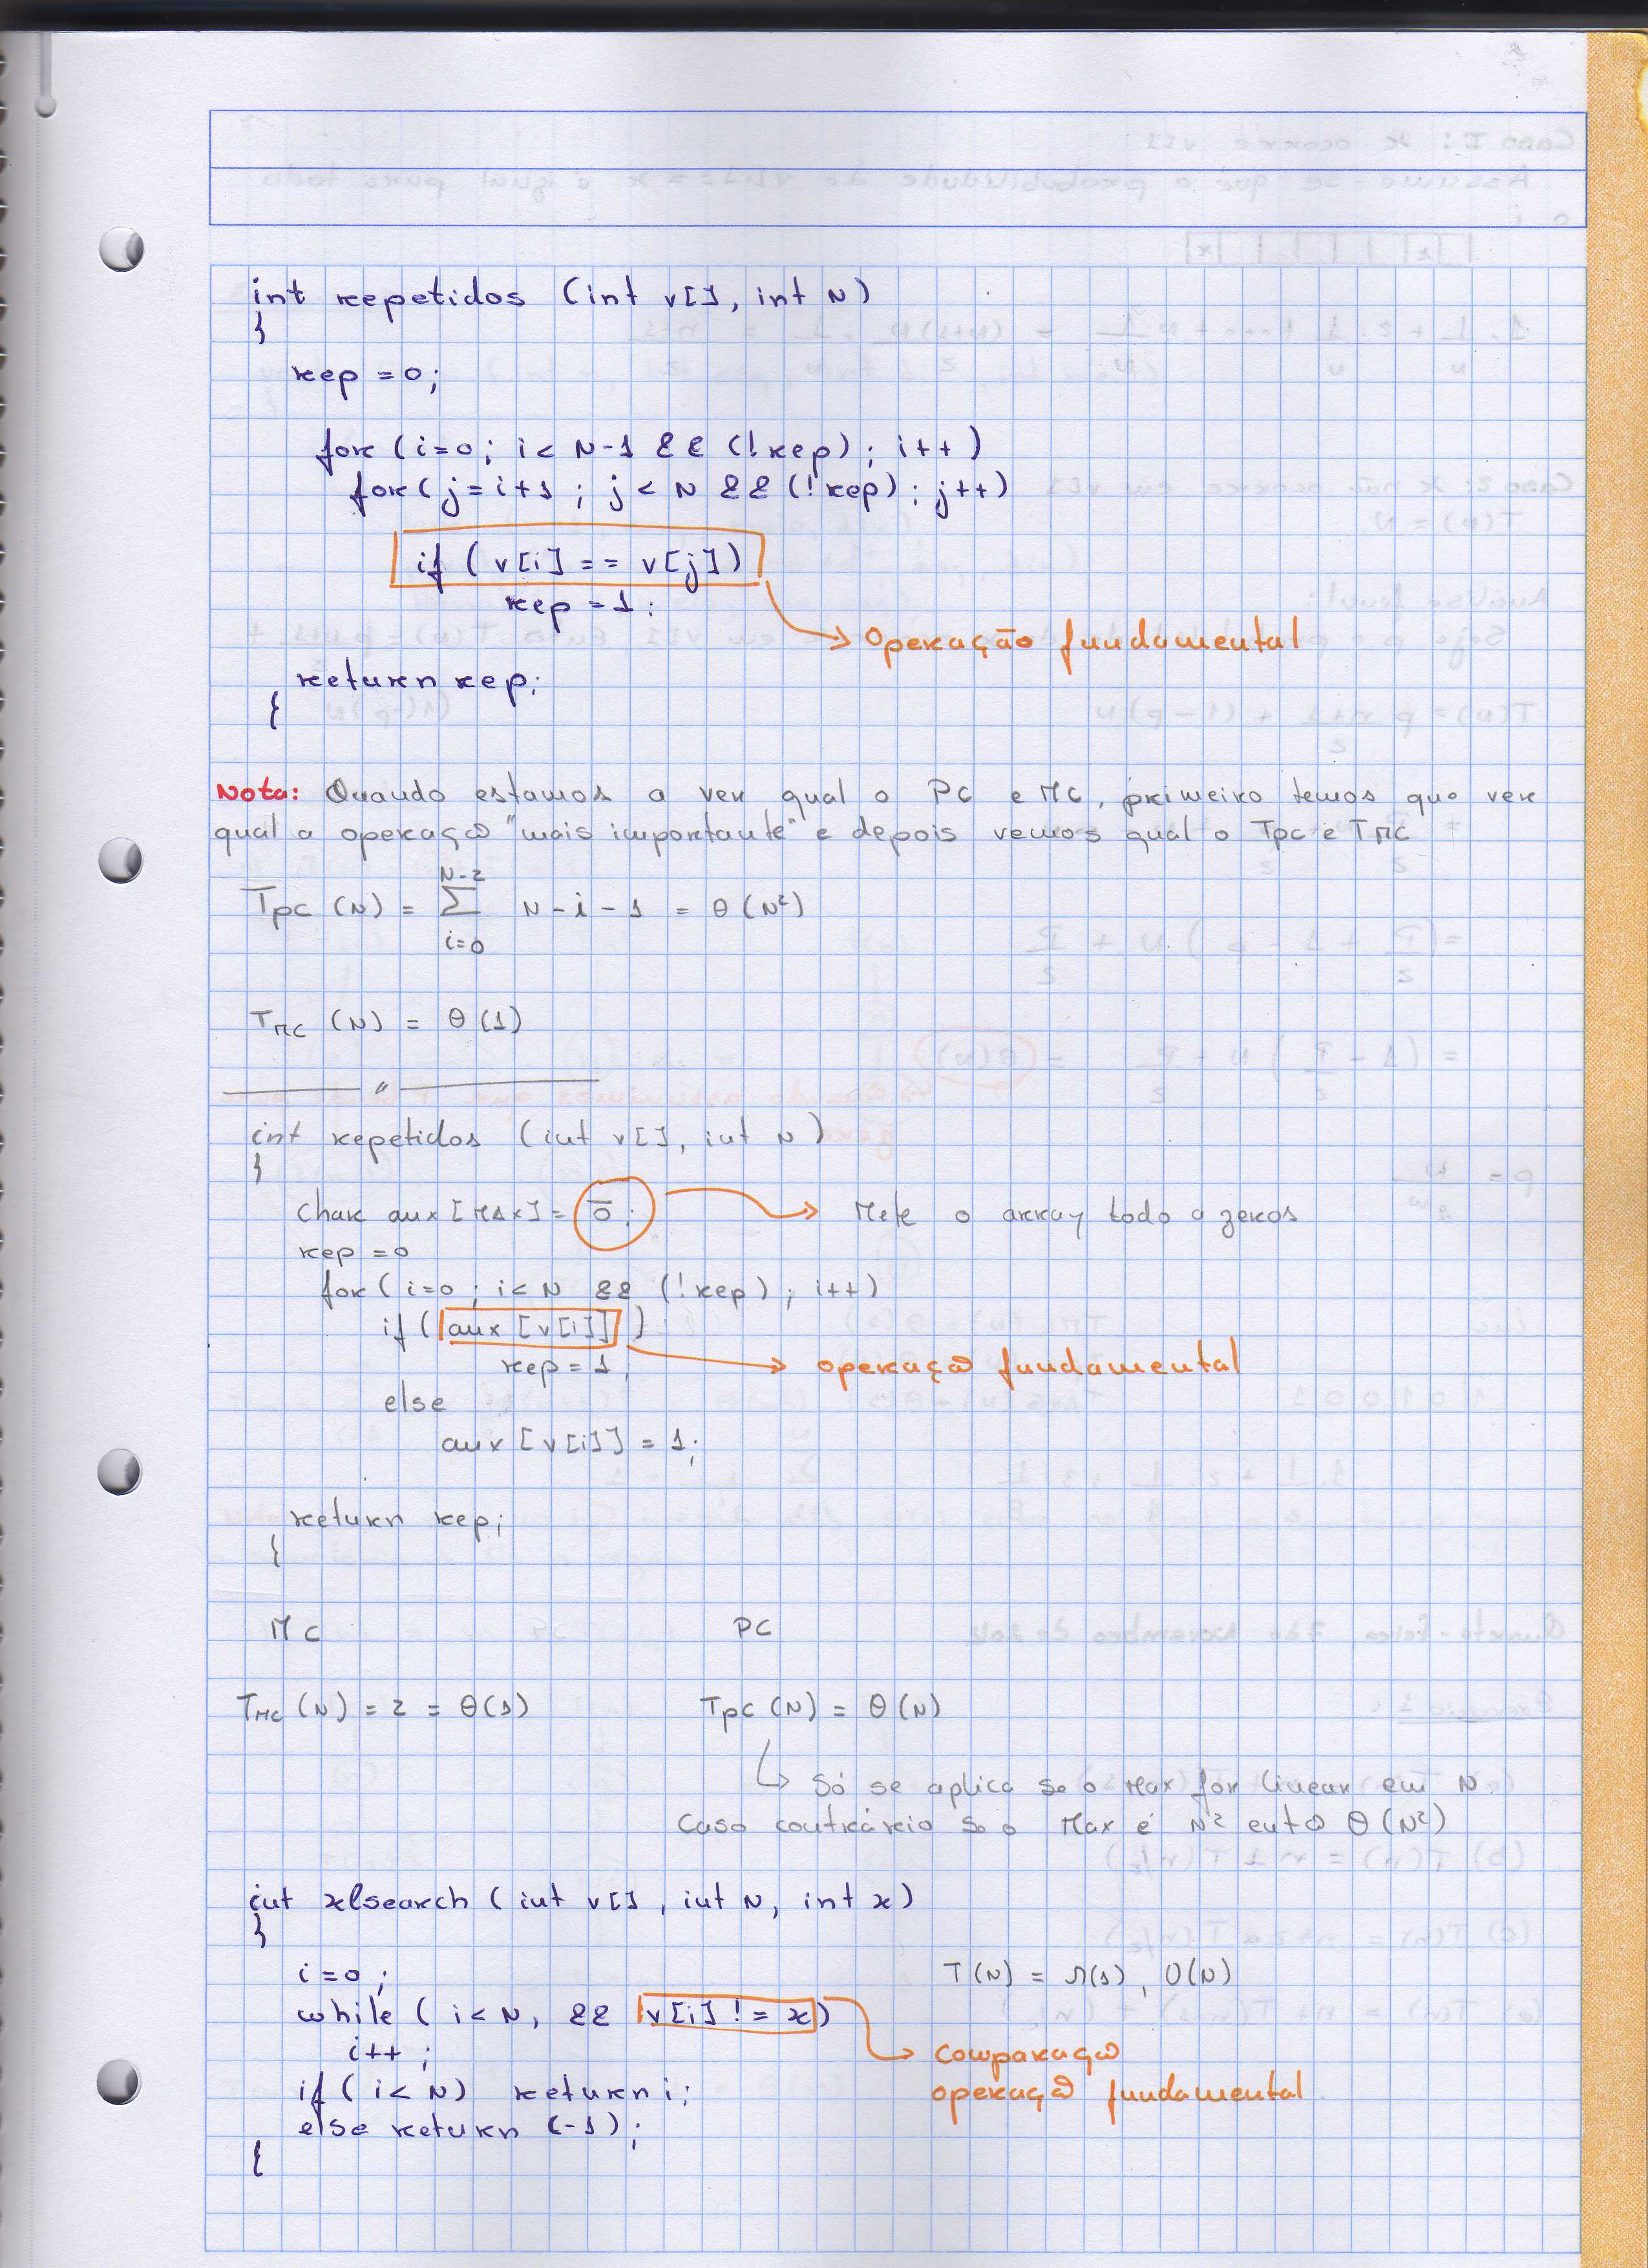 int repetidos (int v[], int N)
}
rep = 0;
for (i=0; i < N-1 && (!rep); i++)
for (j=i+1 ; j < N && (!rep); j++)
if ( v[i] == v[j])
rep = 1;
Operação fundamental
return rep;
{
Nota: Quando estamos a ver qual o PC e MC, primeiro temos que ver
qual a operação "mais importante" e depois vemos qual o Tpc e TMC
N-2
Tpc (N) = Σ N - i - 1 = θ(N²)
i=0
TMC (N) = θ(1)
"
int repetidos (int v[], int N)
}
char aux [MAX] = 0̅; → Mete o array todo a zeros
rep = 0
for (i=0 ; i < N && (!rep) ; i++)
if ( aux [v[i]] )
rep = 1; → operação fundamental
else
aux [v[i]] = 1;
return rep;
{
MC PC
TMC (N) = 2 = θ(1) Tpc (N) = θ(N)
↳ Só se aplica se o Max for linear em N
Caso contrário se o Max é N² então θ(N²)
int xlsearch (int v[], int N, int x)
}
i=0 ; T(N) = Ω(1), O(N)
while ( i < N, && v[i] != x)
i++ ; → comparação
if ( i < N) return i; operação fundamental
else return (-1);
{